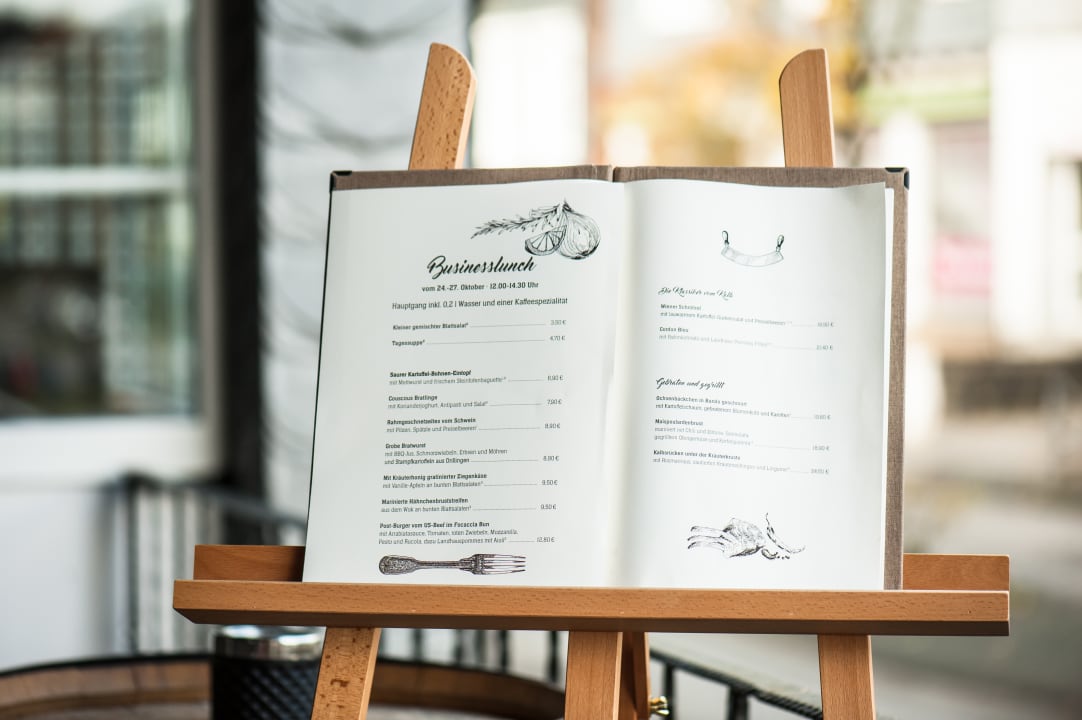 Businesslunch
vom 24.-27. Oktober · 12.00-14.30 Uhr
Hauptgang inkl. 0,2 l Wasser und einer Kaffeespezialität
Kleiner gemischter Blattsalat 3,50 €
Tagessuppe 4,70 €
Saurer Kartoffel-Bohnen-Eintopf
mit Mettwurst und frischem Steinofenbaguette 6,90 €
Couscous Bratlinge
mit Korianderjoghurt, Antipasti und Salat 7,90 €
Rahmgeschnetzeltes vom Schwein
mit Pilzen, Spätzle und Preiselbeeren 8,90 €
Grobe Bratwurst
mit BBQ Jus, Schmorzwiebeln, Erbsen und Möhren
und Stampfkartoffeln aus Drillingen 8,90 €
Mit Kräuterhonig gratinierter Ziegenkäse
mit Vanille-Äpfeln an bunten Blattsalaten 9,50 €
Marinierte Hähnchenbruststreifen
aus dem Wok an bunten Blattsalaten 9,50 €
Post-Burger vom US-Beef im Focaccia Bun
mit Arrabiatasauce, Tomaten, roten Zwiebeln, Mozzarella,
Pesto und Rucola, dazu Landhauspommes mit Aioli 12,80 €
Die Klassiker vom Kalb
Wiener Schnitzel
mit lauwarmem Kartoffel-Gurkensalat und Preiselbeeren
Cordon Bleu
mit Rahmkohlrabi und
Gebraten und gegrillt
Ochsenbäckchen in Barolo geschmort
mit Kartoffelschaum, gebratenem Blumenkohl und Karotten
Maispoulardenbrust
mariniert mit Chili und
gegrilltem
Kalbsrücken unter der Kräuterkruste
mit Rosmarinjus,